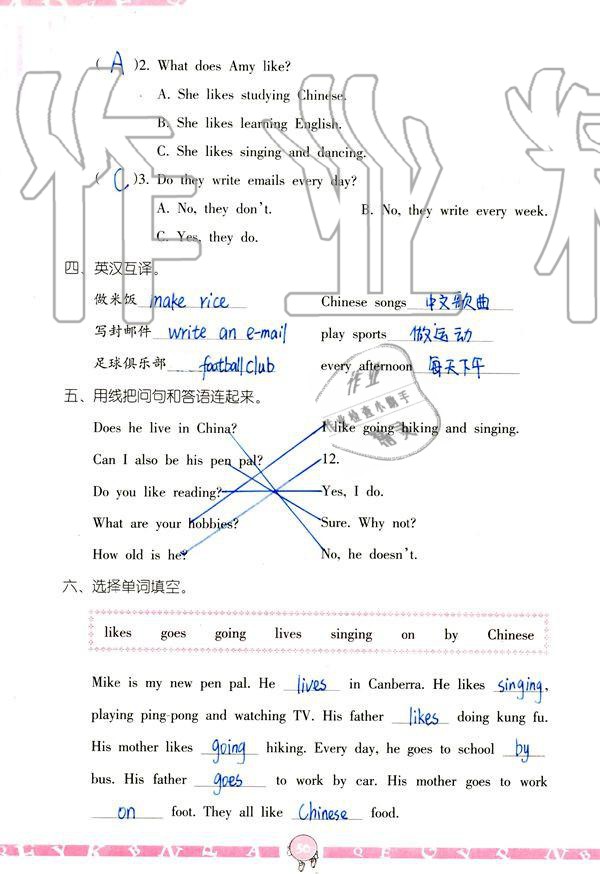 ( A )2. What does Amy like?
A. She likes studying Chinese.
B. She likes learning English.
C. She likes singing and dancing.
( C )3. Do they write emails every day?
A. No, they don't. B. No, they write every week.
C. Yes, they do.
四、英汉互译。
做米饭 make rice Chinese songs 中文歌曲
写封邮件 write an e-mail play sports 做运动
足球俱乐部 football club every afternoon 每天下午
五、用线把问句和答语连起来。
Does he live in China? I like going hiking and singing.
Can I also be his pen pal? 12.
Do you like reading? Yes, I do.
What are your hobbies? Sure. Why not?
How old is he? No, he doesn't.
六、选择单词填空。
likes goes going lives singing on by Chinese
Mike is my new pen pal. He lives in Canberra. He likes singing,
playing ping-pong and watching TV. His father likes doing kung fu.
His mother likes going hiking. Every day, he goes to school by
bus. His father goes to work by car. His mother goes to work
on foot. They all like Chinese food.
50
作业
作业检查小帮手